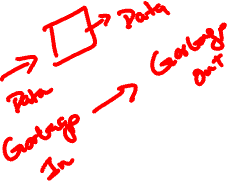 Data
Data
Garbage
In
Garbage
out